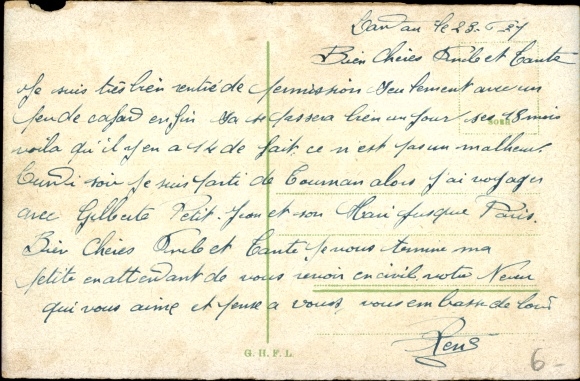 Landau le 23-6-27
Bien Chères Oncle et Tante
Je suis très bien rentré de permission seulement avec un
peu de cafard enfin sa se passera bien un jour ses 18 mois
voila qu'il y en a 14 de fait, ce n'est pas un malheur.
Lundi soir je suis parti de Tournan alors j'ai voyager
avec Gilberte Petit-Jean et son Mari jusque Paris.
Bien Chères Oncle et Tante je vous termine ma
petite en attendant de vous revoir en civil votre Neveu
qui vous aime et pense a vous, vous embrasse de loin
René
G. H. F. L.
6-